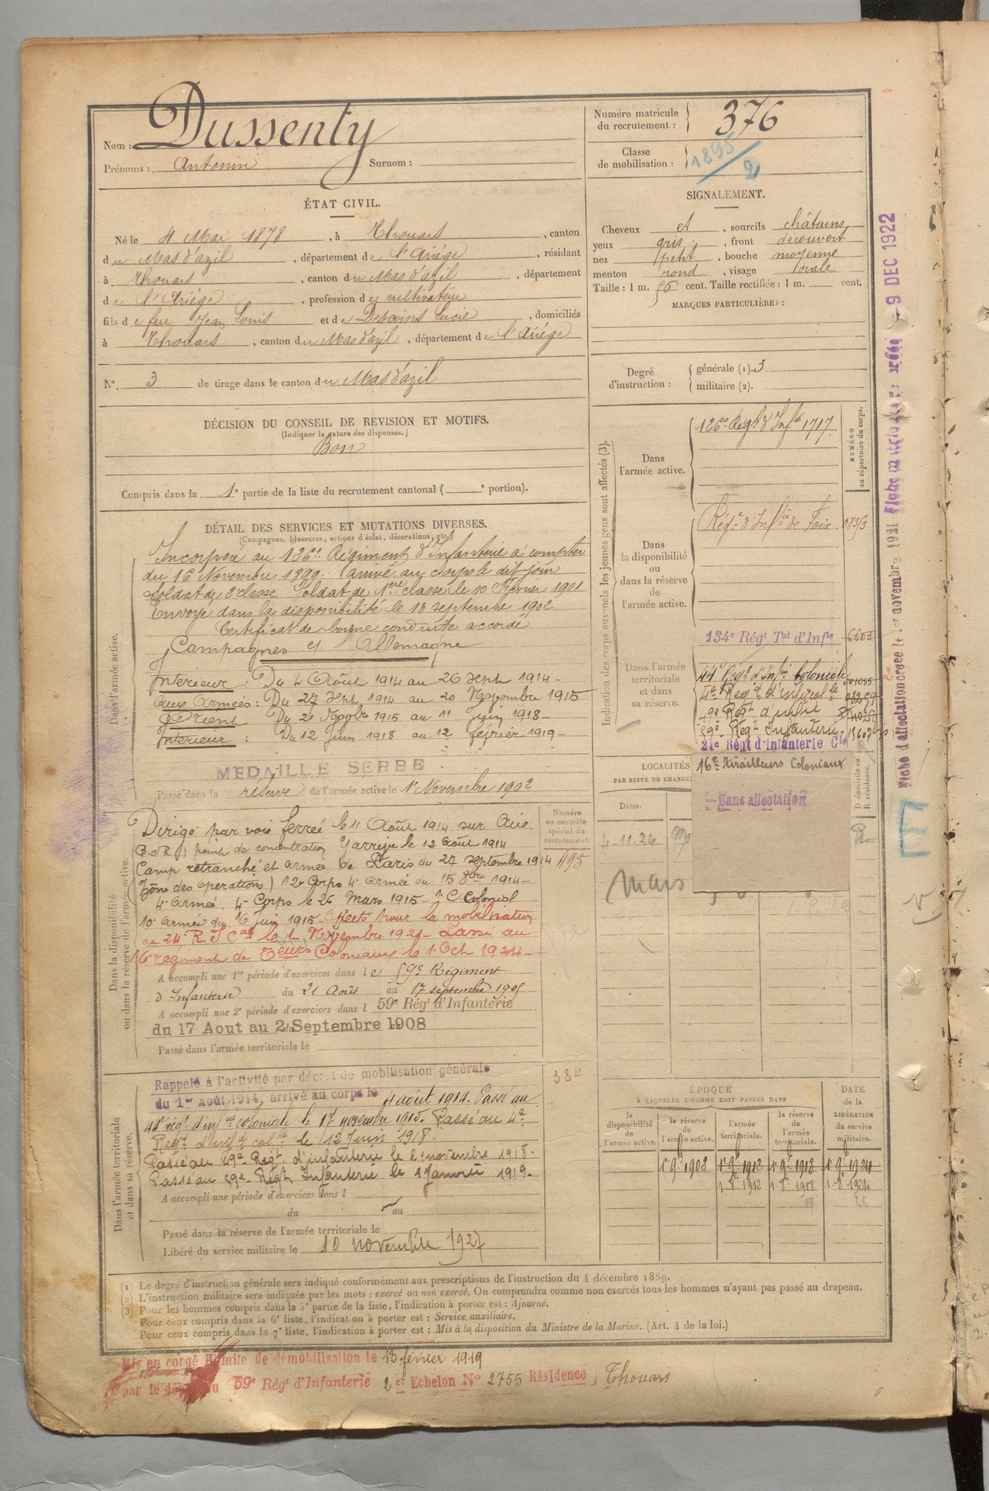 Nom : Dussenty
Prénoms : Antonin Surnom :
Numéro matricule du recrutement : 376
Classe de mobilisation : 1895
ÉTAT CIVIL.
Né le 4 Mai 1878, à Thouars, canton
du Mas d'azil, département de l'Ariége, résidant
à Thouars, canton du Mas d'azil, département
de l'Ariége, profession de cultivateur
fils de feu Jean Louis et de Descoins Lucie, domiciliés
à Thouars, canton du Mas d'azil, département de l'Ariége
N° 3 de tirage dans le canton du Mas d'azil
SIGNALEMENT.
Cheveux et, sourcils châtains
yeux gris, front découvert
nez petit, bouche moyenne
menton rond, visage ovale
Taille : 1 m. 56 cent. Taille rectifiée : 1 m. cent.
MARQUES PARTICULIÈRES :
Degré d'instruction : générale (1). 3
militaire (2).
DÉCISION DU CONSEIL DE REVISION ET MOTIFS.
(Indiquer la nature des dispenses.)
Bon
Compris dans la 1e partie de la liste du recrutement cantonal ( e portion).
DÉTAIL DES SERVICES ET MUTATIONS DIVERSES.
(Campagnes, blessures, actions d'éclat, décorations, etc.)
Dans l'armée active.
Incorporé au 126e Régiment d'infanterie à compter
du 16 Novembre 1899. arrivé au corps le dit jour
soldat de 2e classe. Soldat de 1ère classe le 10 Février 1901
Envoyé dans la disponibilité le 18 septembre 1902
Certificat de bonne conduite accordé
Campagnes et Allemagne
Intérieur : Du 4 Août 1914 au 26 Sept 1914 -
aux Armées : Du 27 Sept 1914 au 20 Novembre 1915
Orient Du 21 Novbre 1915 au 11 Juin 1918 -
Intérieur : Du 12 Juin 1918 au 12 février 1919 -
MEDAILLE SERBE
Passé dans la réserve de l'armée active le 1er Novembre 1902
Dans la disponibilité ou dans la réserve de l'armée active.
Numéro au contrôle spécial du recrutement.
495
Dirigé par voie ferrée le 11 Août 1914 sur
point de concentration le 12 Août 1914
Camp retranché et armée de Paris du 27 septembre 1914
(Zône des opérations) 12e Corps 4e Armée du 15 8bre 1914 -
4e Armée 4e Corps le 26 Mars 1915 - 1er C. Colonial
10e Armée du 16 juin 1915 - Affecté pour la mobilisation
au 24 R. I Cal le 1 Novembre 1921 - Passé au
16 régiment de Teurs Coloniaux le 1 Oct 1924
A accompli une 1re période d'exercices dans le 59e Régiment
d'Infanterie du 21 Août au 17 septembre 1905
A accompli une 2e période d'exercices dans l 59e Régt d'Infanterie
du 17 Aout au 2 Septembre 1908
Passé dans l'armée territoriale le
Dans l'armée territoriale et dans sa réserve.
384
Rappelé à l'activité par décret de mobilisation générale
du 1er Août 1914, arrivé au corps le 4 août 1914. Passé au
44e régt d'inf rie coloniale le 17 novembre 1915. Passé au 4e
Régt d'inf col le 12 Juin 1918.
Passé au 49e Régt d'infanterie le 2 novembre 1918.
Passé au 59e Régt Infanterie le 1 Janvier 1919.
A accompli une période d'exercices dans l
du au
Passé dans la réserve de l'armée territoriale le
Libéré du service militaire le 10 novembre 1927
Indication des corps auxquels les jeunes gens sont affectés (3).
NUMÉRO au répertoire du corps.
Dans l'armée active.
126e Régt d'Infie 1717
Dans la disponibilité ou dans la réserve de l'armée active.
Régt d'Infie de Foix
Dans l'armée territoriale et dans sa réserve.
134e Régt Tal d'Infie 6603
44e Régt d'Infie Coloniale
4e Régt d'Infanterie
49e Régt d'Infie
59e Régt Infanterie
21e Régt d'Infanterie Cle
16e tirailleurs Coloniaux
Sans affectation
LOCALITÉS
PAR SUITE DE CHANGE
Dates.
D. domicile ou R. résidence.
4-11-24
R
Mars
ÉPOQUE
À LAQUELLE L'HOMME DOIT PASSER DANS
la disponibilité de l'armée active.
la réserve de l'armée active.
l'armée territoriale.
la réserve de l'armée territoriale.
DATE de la LIBÉRATION du service militaire.
1er 9bre 1902 1er 9bre 1912 1er 9bre 1918 1er 9bre 1924
(1) Le degré d'instruction générale sera indiqué conformément aux prescriptions de l'instruction du 4 décembre 1889.
(2) L'instruction militaire sera indiquée par les mots : exercé ou non exercé. On comprendra comme non exercés tous les hommes n'ayant pas passé au drapeau.
(3) Pour les hommes compris dans la 5e partie de la liste, l'indication à porter est : Ajourné.
Pour ceux compris dans la 6e liste, l'indication à porter est : Service auxiliaire.
Pour ceux compris dans la 7e liste, l'indication à porter est : Mis à la disposition du Ministre de la Marine. (Art. 4 de la loi.)
Mis en congé illimité de démobilisation le 13 février 1919
par le dépôt du 59e Régt d'Infanterie 2e Echelon N° 2755 Résidence, Thouars
Fiche d'affectation créée le 1er novembre 1921
9 DEC 1922
E